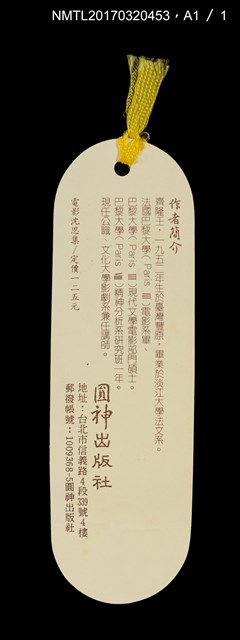 NMTL20170320453，A1／1
作者簡介
齊隆壬，一九五二年生於臺灣豐原，畢業於淡江大學法文系。
法國巴黎大學（Paris Ⅲ）電影系畢、
巴黎大學（Paris Ⅲ）現代文學電影部門碩士。
巴黎大學（Paris Ⅷ）精神分析系研究班一年。
現任公職、文化大學影劇系兼任講師。
電影沈思集／定價一二五元
圓神出版社
地址：台北市信義路4段339號4樓
郵撥帳號：1009368-5圓神出版社